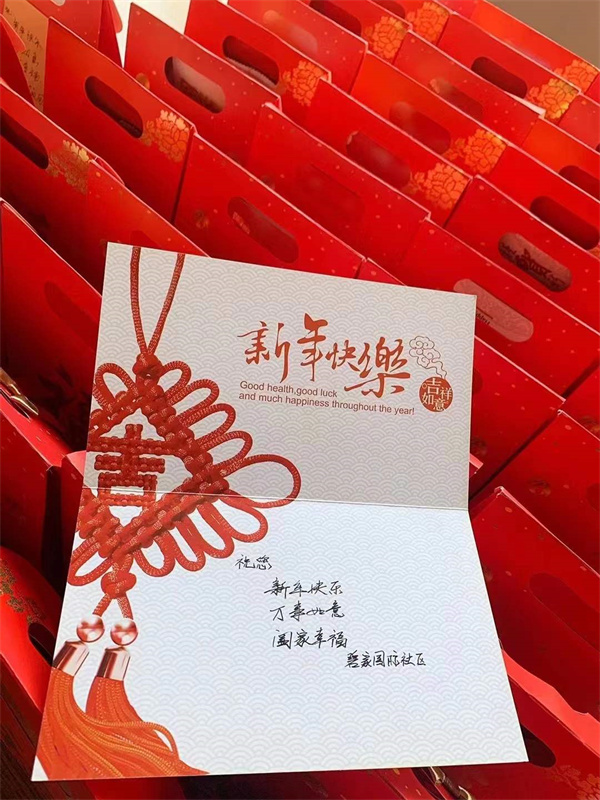 新年快樂
Good health,good luck
and much happiness throughout the year!
吉祥
如意
吉
祝您
新年快乐
万事如意
阖家幸福
碧家国际社区